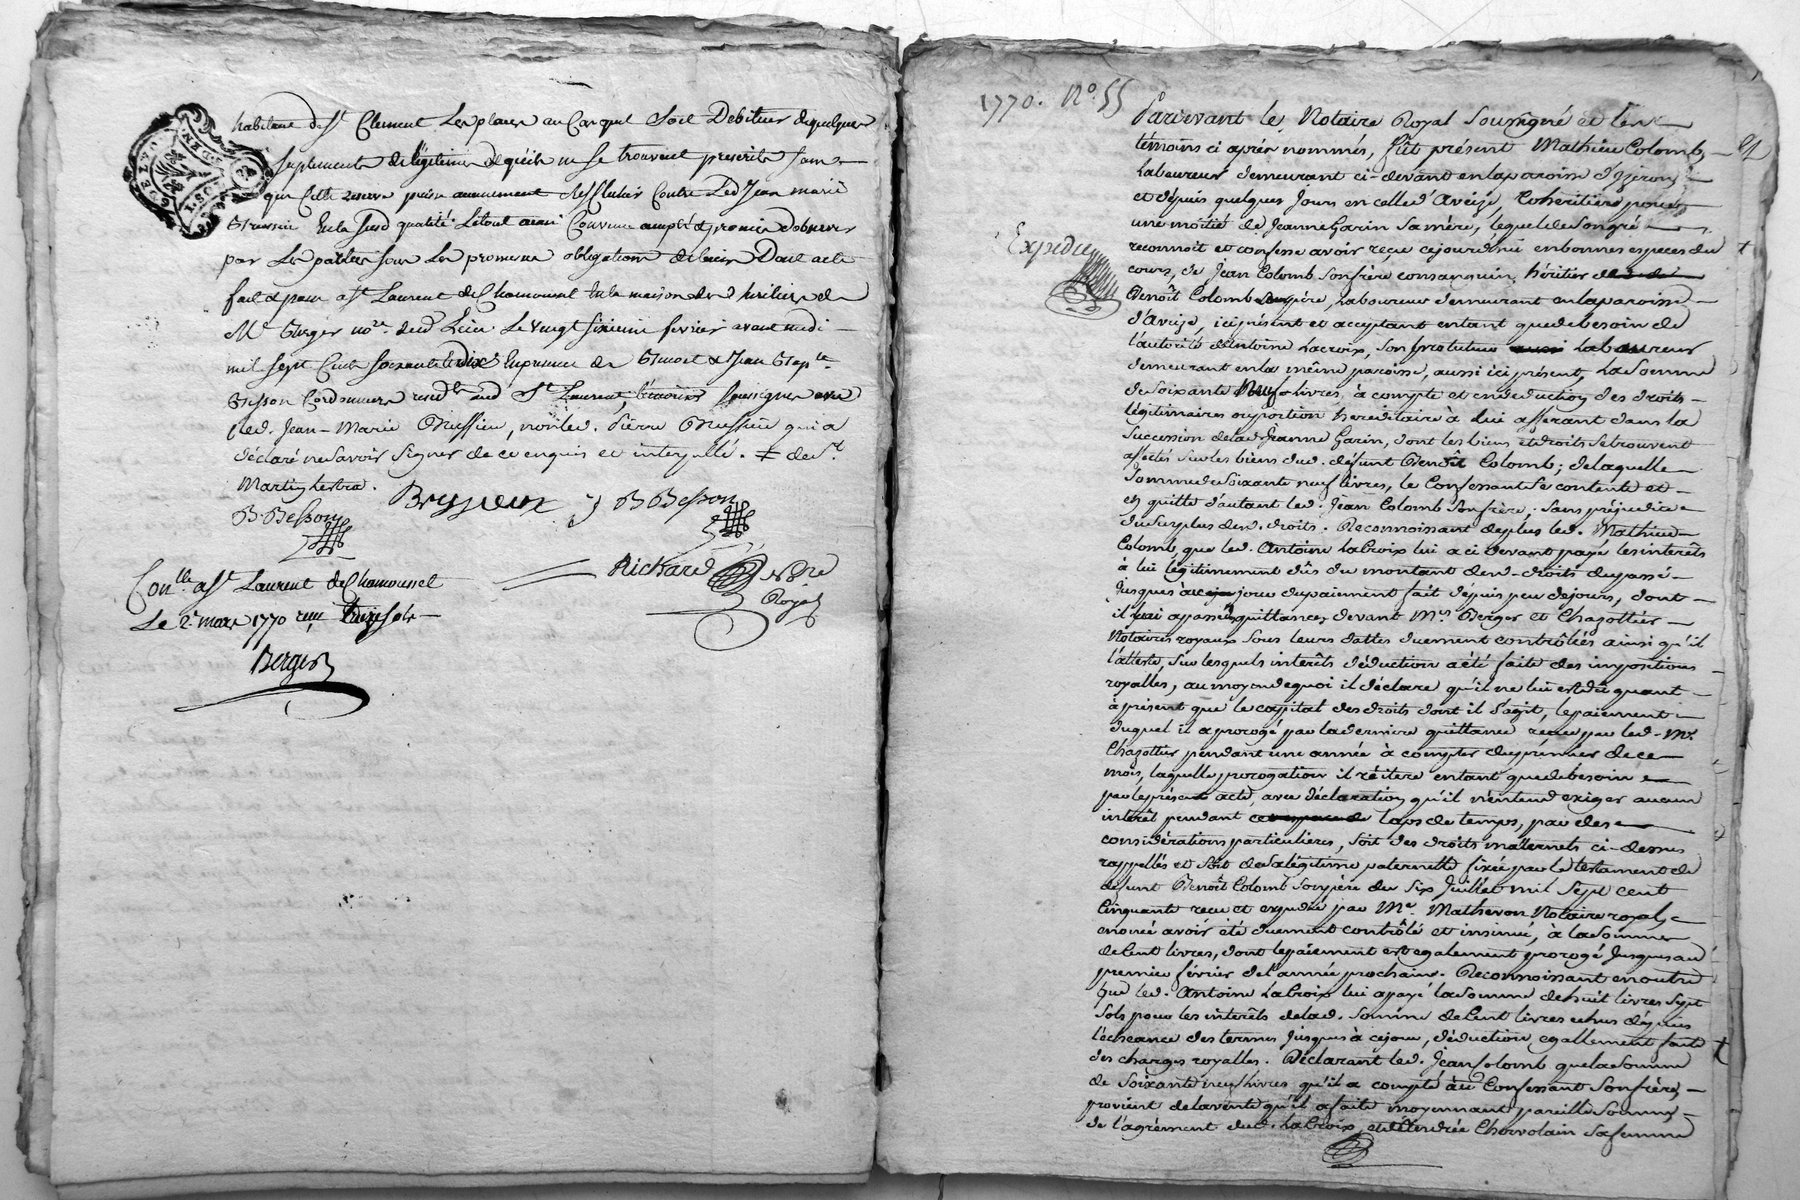 habitant de St Clement Les places au Cas quil Soit Debiteur de quelques
Suplements de legitime & quils ne se trouvent prescrits sans
que Cette reserve puisse aucunement Contre Led Jean marie
qualité Le tout ainsi Convenu accepté & promis dobserver
par Les parties sous Les promesses obligations de biens Dont acte
fait & passé a St Laurent de Chamousset En la maison des heritiers de
Me Berger nore. dud Lieu Le Vingt sixieme fevrier avant midi
mil sept Cents soixante & dix En presence de Benoit & Jean Bapte.
Besson Cordonniers resid. aud St Laurent, témoins soussignés avec
led. Jean-Marie Brissieu, non led. Pierre Brussieu qui a
déclaré ne savoir signer de ce enquis et interpellé. ≠ de St
Martin
B. Besson
B Besson
Conlle a St Laurent de Chamousset
Le 2. mars 1770 reçu treize sols
Richard Nore
Royal
Berger
1770. No. 55
Expedié
Pardevant le Notaire Royal Soussigné et les
témoins ci après nommés, fût présent Mathieu Colomb,
Laboureur demeurant ci-devant en la paroisse d'Izeron,
et depuis quelques jours en celle d'Aveize, Cohéritier pour
une moitié de Jeanne Garin Sa mère, lequel de son gré
reconnoit et confesse avoir reçu cejourdhui en bonnes especes du
cours, de Jean Colomb son frère consanguin, héritier
Benoît Colomb Son père, Laboureur demeurant en la paroisse
d'Aveize, ici présent et acceptant entant que de besoin de
l'autorité d'Antoine Lacroix, son protuteur Laboureur
demeurant en la même paroisse, aussi ici présent, la Somme
de Soixante Neuf livres, à compte et en déduction des droits
légitimaires ou portion hereditaire à lui afferant dans la
succession de lad. Jeanne Garin, dont les biens et droits se trouvent
affectés sur les biens dud. défunt Benoît Colomb; de laquelle
Somme de Soixante neuf livres, le Confessant se contente et
en quitte d'autant led. Jean Colomb son frère; sans préjudice
du surplus desd. droits. Reconnoissant de plus led. Mathieu
Colomb, que led. Antoine LaCroix lui a ci devant payé les intérêts
à lui légitimement dûs du montant desd. droits du passé
jusques à ce jour du paiement fait depuis peu de jours, dont
il lui a passé quittances devant Mes Berger et Chazottier
Notaires royaux sous leurs dattes duement contrôlées ainsi qu'il
l'atteste, sur lesquels intérêts déduction a été faite des impositions
royalles, au moyen de quoi il déclare qu'il ne lui est dû quant
à présent que le capital des droits dont il s'agit, le paiement
duquel il a prorogé par la derniere quittance reçue par led. Me.
Chazottier pendant une année à compter du premier de ce
mois, laquelle prorogation il réitere entant que de besoin
par le présent acte, avec déclaration qu'il n'entend exiger aucun
intérêt pendant laps de tems, par des
considérations particulieres, soit des droits maternels ci-dessus
rappellés et soit de sa légitime paternelle fixée par le testament de
défunt Benoît Colomb son père du six Juillet mil sept cent
Cinquante reçu et expédié par Me. Mathevon Notaire royal,
énoncé avoir été duement contrôlé et insinué, à la somme
de Cent livres, dont le paiement est egalement prorogé jusques au
premier février de l'année prochaine. Reconnoissant en outre
que led. Antoine LaCroix lui a payé la somme de huit livres sept
Sols pour les intérêts de lad. Somme de Cent livres échus depuis
l'écheance des termes jusques à ce jour, déduction egallement faite
des charges royalles. Déclarant led. Jean Colomb que la Somme
de Soixante neuf livres qu'il a compté au Confessant son frère,
provient de la vente qu'il a faite moyennant pareille Somme,
de l'agrément dud. LaCroix, et d'Andrée Chorvolain Sa femme